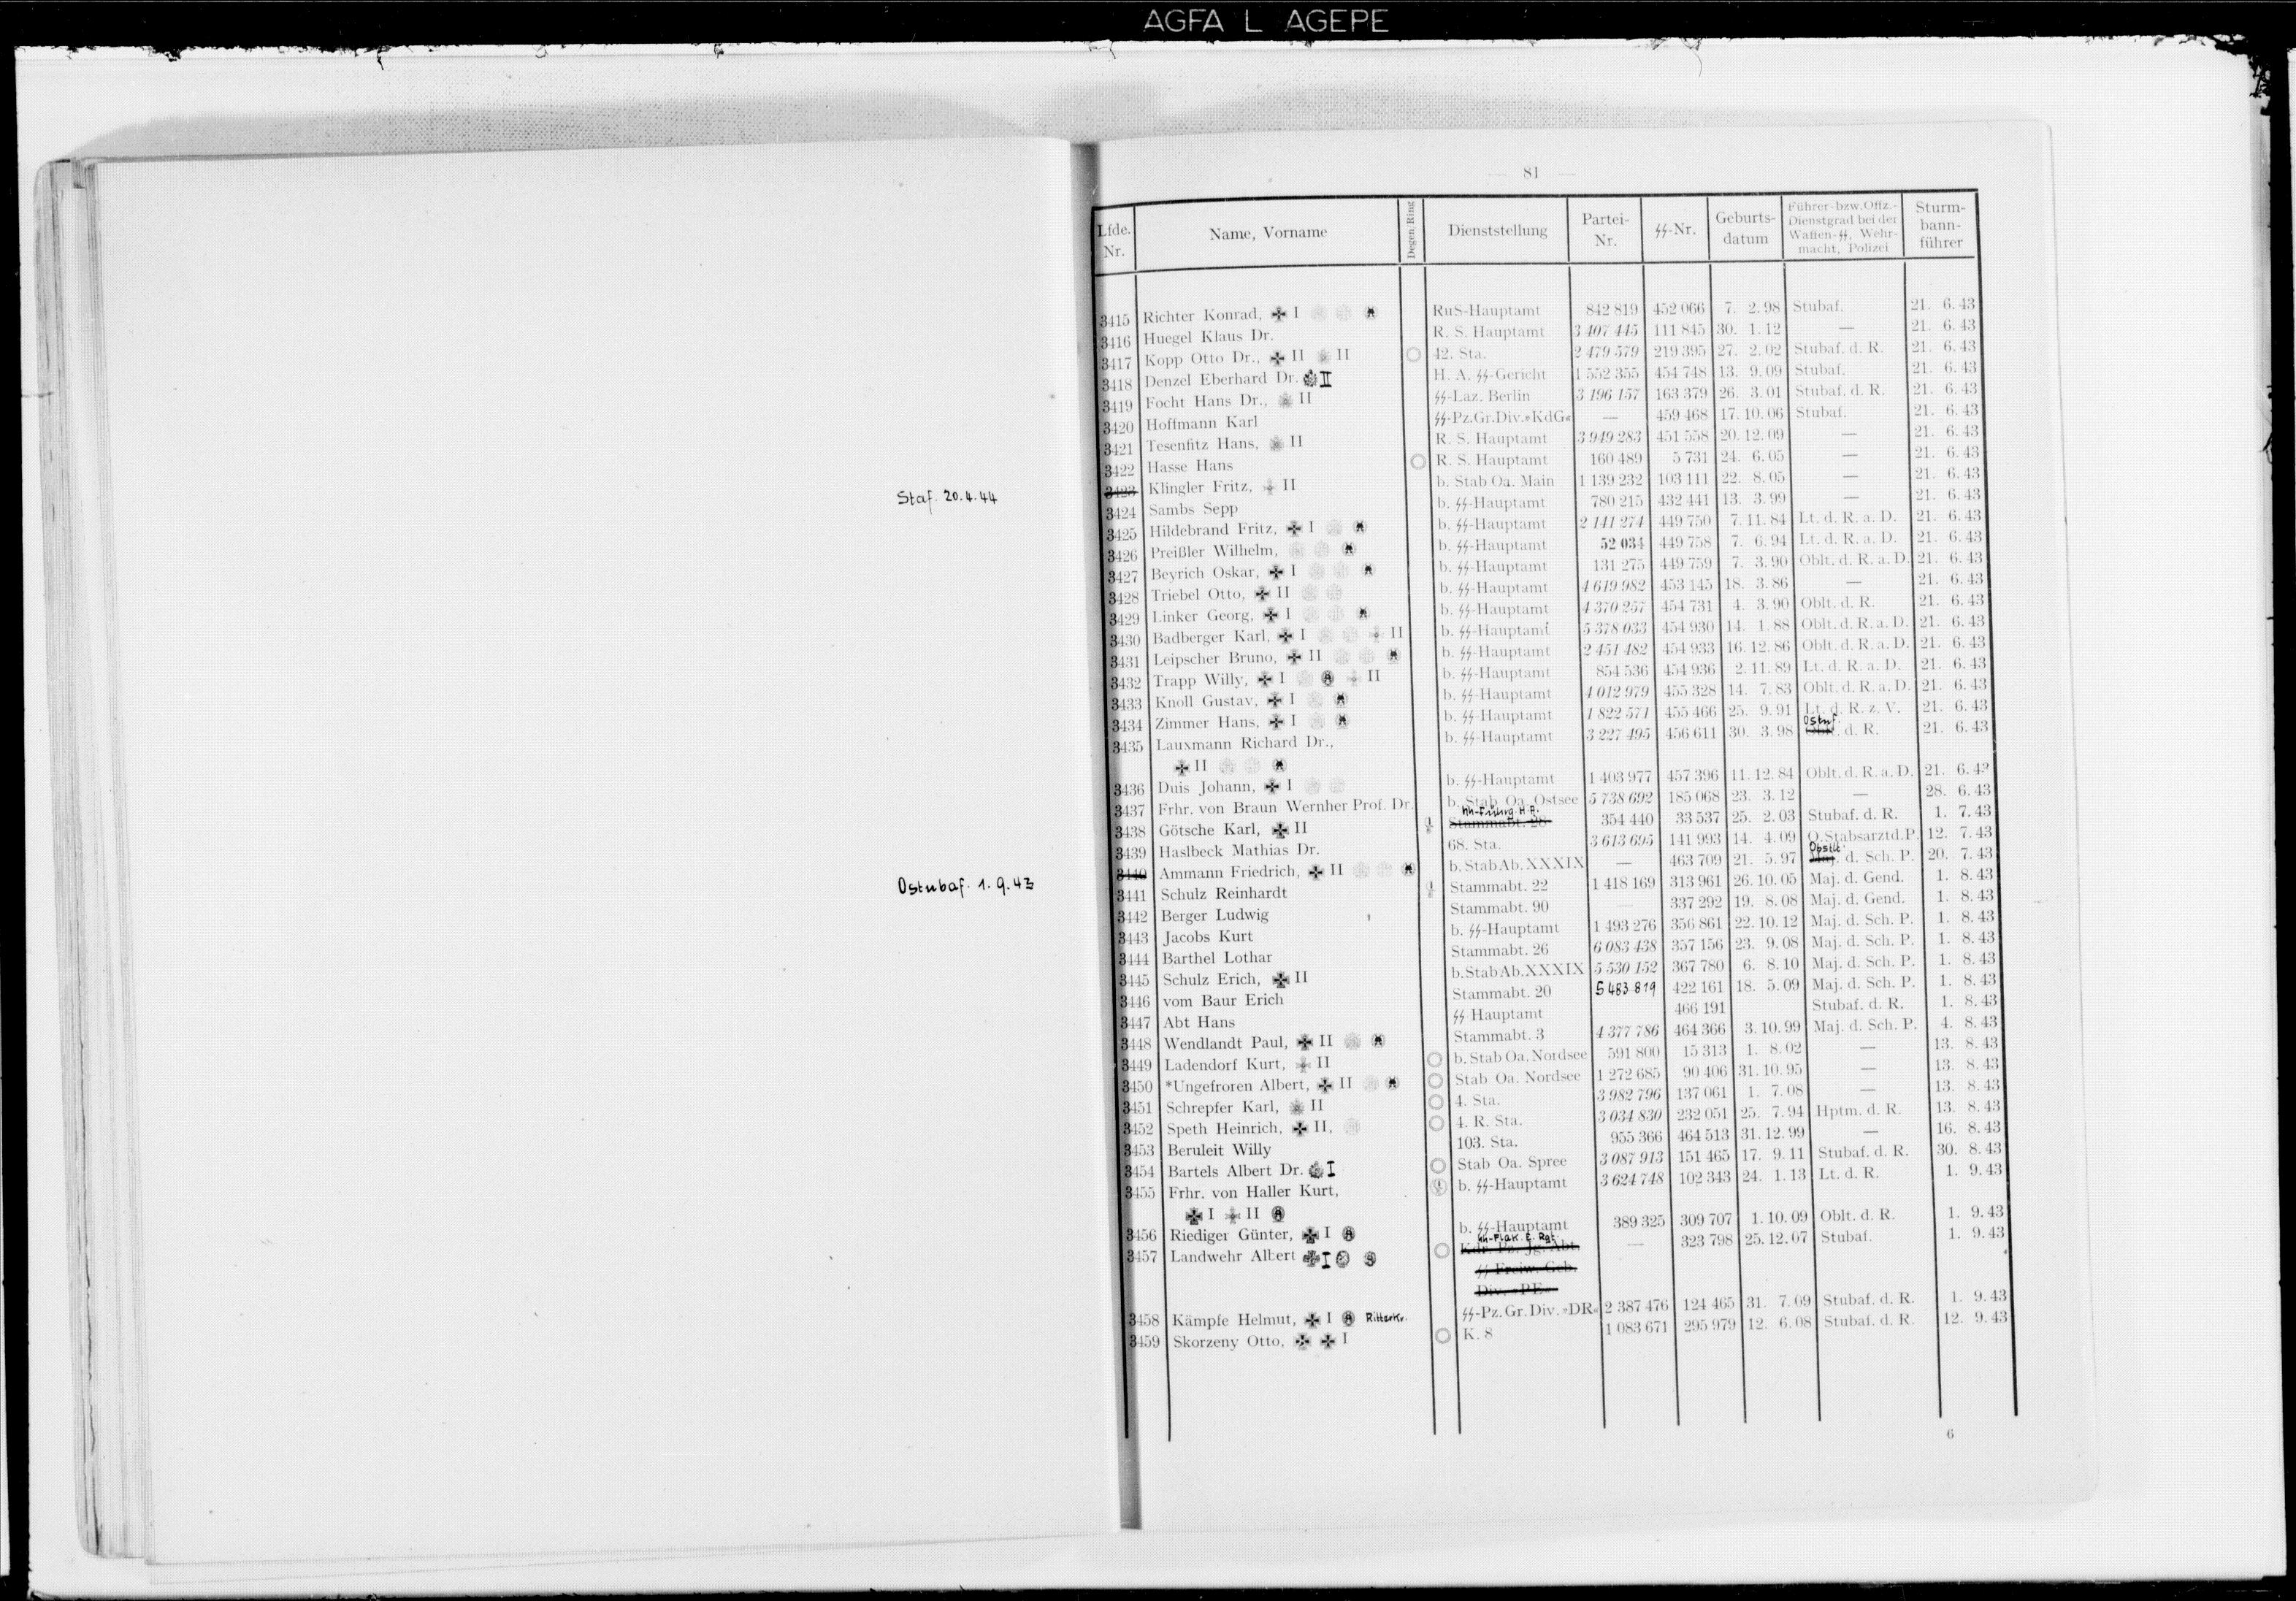 AGFA L AGEPE
— 81 —
Lfde. Nr. | Name, Vorname | Degen Ring | Dienststellung | Partei-Nr. | ᛋᛋ-Nr. | Geburts-datum | Führer-bzw. Offz.-Dienstgrad bei der Waffen-ᛋᛋ, Wehr-macht, Polizei | Sturm-bann-führer
3415 Richter Konrad, ✠ I RuS-Hauptamt 842 819 452 066 7. 2. 98 Stubaf. 21. 6. 43
3416 Huegel Klaus Dr. R. S. Hauptamt 3 407 445 111 845 30. 1. 12 — 21. 6. 43
3417 Kopp Otto Dr., ✠ II II 42. Sta. 2 479 579 219 395 27. 2. 02 Stubaf. d. R. 21. 6. 43
3418 Denzel Eberhard Dr. II H. A. ᛋᛋ-Gericht 1 552 355 454 748 13. 9. 09 Stubaf. 21. 6. 43
3419 Focht Hans Dr., II ᛋᛋ-Laz. Berlin 3 196 157 163 379 26. 3. 01 Stubaf. d. R. 21. 6. 43
3420 Hoffmann Karl ᛋᛋ-Pz.Gr.Div.»KdG« — 459 468 17. 10. 06 Stubaf. 21. 6. 43
3421 Tesenfitz Hans, II R. S. Hauptamt 3 949 283 451 558 20. 12. 09 — 21. 6. 43
3422 Hasse Hans R. S. Hauptamt 160 489 5 731 24. 6. 05 — 21. 6. 43
Staf. 20.4.44 3423 Klingler Fritz, II b. Stab Oa. Main 1 139 232 103 111 22. 8. 05 — 21. 6. 43
3424 Sambs Sepp b. ᛋᛋ-Hauptamt 780 215 432 441 13. 3. 99 — 21. 6. 43
3425 Hildebrand Fritz, ✠ I b. ᛋᛋ-Hauptamt 2 141 274 449 750 7. 11. 84 Lt. d. R. a. D. 21. 6. 43
3426 Preißler Wilhelm, b. ᛋᛋ-Hauptamt 52 034 449 758 7. 6. 94 Lt. d. R. a. D. 21. 6. 43
3427 Beyrich Oskar, ✠ I b. ᛋᛋ-Hauptamt 131 275 449 759 7. 3. 90 Oblt. d. R. a. D. 21. 6. 43
3428 Triebel Otto, ✠ II b. ᛋᛋ-Hauptamt 4 619 982 453 145 18. 3. 86 — 21. 6. 43
3429 Linker Georg, ✠ I b. ᛋᛋ-Hauptamt 4 370 257 454 731 4. 3. 90 Oblt. d. R. 21. 6. 43
3430 Badberger Karl, ✠ I II b. ᛋᛋ-Hauptamt 5 378 033 454 930 14. 1. 88 Oblt. d. R. a. D. 21. 6. 43
3431 Leipscher Bruno, ✠ II b. ᛋᛋ-Hauptamt 2 451 482 454 933 16. 12. 86 Oblt. d. R. a. D. 21. 6. 43
3432 Trapp Willy, ✠ I II b. ᛋᛋ-Hauptamt 854 536 454 936 2. 11. 89 Lt. d. R. a. D. 21. 6. 43
3433 Knoll Gustav, ✠ I b. ᛋᛋ-Hauptamt 4 012 979 455 328 14. 7. 83 Oblt. d. R. a. D. 21. 6. 43
3434 Zimmer Hans, ✠ I b. ᛋᛋ-Hauptamt 1 822 571 455 466 25. 9. 91 Lt. d. R. z. V. 21. 6. 43
3435 Lauxmann Richard Dr., b. ᛋᛋ-Hauptamt 3 227 495 456 611 30. 3. 98 Ostuf. d. R. 21. 6. 43
✠ II
3436 Duis Johann, ✠ I b. ᛋᛋ-Hauptamt 1 403 977 457 396 11. 12. 84 Oblt. d. R. a. D. 21. 6. 43
3437 Frhr. von Braun Wernher Prof. Dr. b. Stab Oa. Ostsee 5 738 692 185 068 23. 3. 12 — 28. 6. 43
3438 Götsche Karl, ✠ II Stammabt. 28 ᛋᛋ-Führg. H.A. 354 440 33 537 25. 2. 03 Stubaf. d. R. 1. 7. 43
3439 Haslbeck Mathias Dr. 68. Sta. 3 613 695 141 993 14. 4. 09 O. Stabsarzt d. P. 12. 7. 43
Ostubaf. 1.9.43 3440 Ammann Friedrich, ✠ II b. Stab Ab. XXXIX — 463 709 21. 5. 97 Maj. Obstlt. d. Sch. P. 20. 7. 43
3441 Schulz Reinhardt Stammabt. 22 1 418 169 313 961 26. 10. 05 Maj. d. Gend. 1. 8. 43
3442 Berger Ludwig Stammabt. 90 — 337 292 19. 8. 08 Maj. d. Gend. 1. 8. 43
3443 Jacobs Kurt b. ᛋᛋ-Hauptamt 1 493 276 356 861 22. 10. 12 Maj. d. Sch. P. 1. 8. 43
3444 Barthel Lothar Stammabt. 26 6 083 438 357 156 23. 9. 08 Maj. d. Sch. P. 1. 8. 43
3445 Schulz Erich, ✠ II b. Stab Ab. XXXIX 5 530 152 367 780 6. 8. 10 Maj. d. Sch. P. 1. 8. 43
3446 vom Baur Erich Stammabt. 20 5 483 819 422 161 18. 5. 09 Maj. d. Sch. P. 1. 8. 43
3447 Abt Hans ᛋᛋ Hauptamt 466 191 Stubaf. d. R. 1. 8. 43
3448 Wendlandt Paul, ✠ II Stammabt. 3 4 377 786 464 366 3. 10. 99 Maj. d. Sch. P. 4. 8. 43
3449 Ladendorf Kurt, II b. Stab Oa. Nordsee 591 800 15 313 1. 8. 02 — 13. 8. 43
3450 *Ungefroren Albert, ✠ II Stab Oa. Nordsee 1 272 685 90 406 31. 10. 95 — 13. 8. 43
3451 Schrepfer Karl, II 4. Sta. 3 982 796 137 061 1. 7. 08 — 13. 8. 43
3452 Speth Heinrich, ✠ II, 4. R. Sta. 3 034 830 232 051 25. 7. 94 Hptm. d. R. 13. 8. 43
3453 Beruleit Willy 103. Sta. 955 366 464 513 31. 12. 99 — 16. 8. 43
3454 Bartels Albert Dr. I Stab Oa. Spree 3 087 913 151 465 17. 9. 11 Stubaf. d. R. 30. 8. 43
3455 Frhr. von Haller Kurt, b. ᛋᛋ-Hauptamt 3 624 748 102 343 24. 1. 13 Lt. d. R. 1. 9. 43
✠ I II
3456 Riediger Günter, ✠ I b. ᛋᛋ-Hauptamt 389 325 309 707 1. 10. 09 Oblt. d. R. 1. 9. 43
3457 Landwehr Albert ✠ I Kdr. Pz. Jg. Abt. ᛋᛋ-Flak. E. Rgt. — 323 798 25. 12. 07 Stubaf. 1. 9. 43
ᛋᛋ Freiw. Geb.
Div. »PE«
3458 Kämpfe Helmut, ✠ I Ritterkr. ᛋᛋ-Pz. Gr. Div. »DR« 2 387 476 124 465 31. 7. 09 Stubaf. d. R. 1. 9. 43
3459 Skorzeny Otto, ✠ ✠ I K. 8 1 083 671 295 979 12. 6. 08 Stubaf. d. R. 12. 9. 43
6